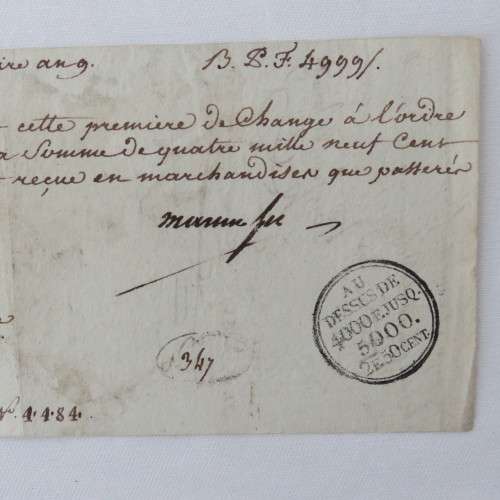 ire an 9. B. P. F. 4999/.
cette première de Change à l'ordre
a Somme de quatre mille neuf Cent
reçue en marchandises que passerés
AU
DESSUS DE
4000 F. JUSQ.
5000.
2 F. 50 CENT.
347
N°. 4.4.84.